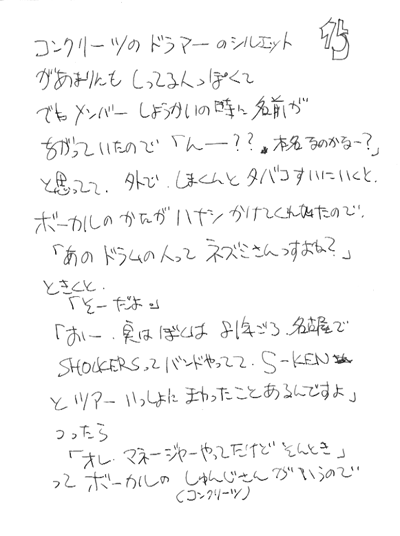 コンクリーツの ドラマーのシルエット
があまりにも しってる人っぽくて
でも メンバー しょうかいの時に 名前が
ちがっていたので 「んー？？ 本名 なのかなー？」
と思ってて、外で、しまくんと タバコすいにいくと、
ボーカルのかたが ハナシかけてくれたので、
「あの ドラムの人って ネズミさんっすよね？」
ときくと、
「そーだよ」
「おー、実は ぼくは 名古屋で
SHOCKERSってバンドやってて、S-KEN
と ツアー いっしょに まわったことあるんですよ」
つったら
「オレ、マネージャーやってたけど そんとき」
って ボーカルの しゅんじさんが いうので
(コンクリーツ)